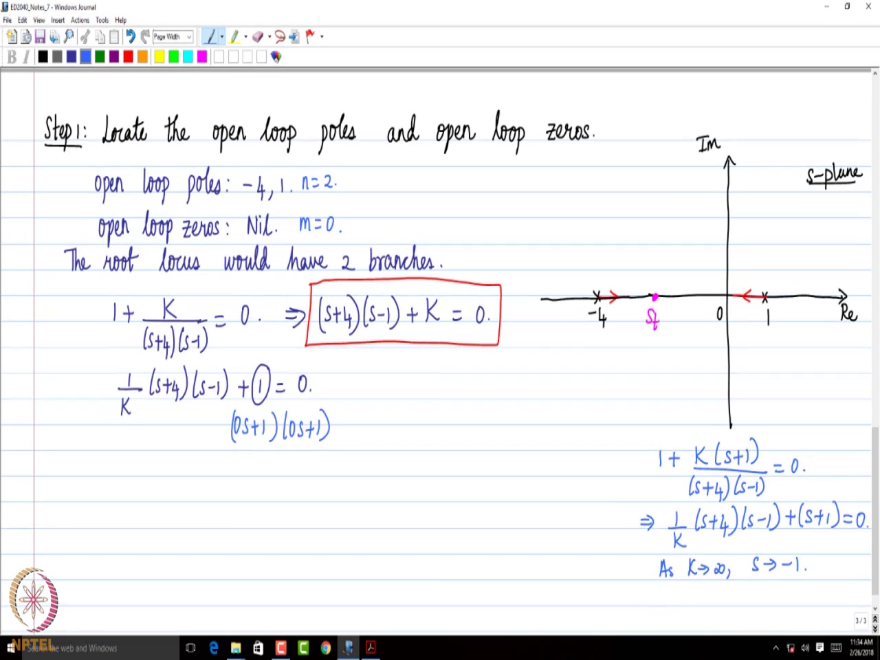 ED2040_Notes_7 - Windows Journal
File Edit View Insert Actions Tools Help
Page Width
B I
Step 1: Locate the open loop poles and open loop zeros.
open loop poles: -4, 1. n=2.
open loop zeros: Nil. m=0.
The root locus would have 2 branches.
1 + K/((s+4)(s-1)) = 0. ⇒ (s+4)(s-1) + K = 0.
1/K (s+4)(s-1) + 1 = 0.
(0s+1)(0s+1)
Im
s-plane
-4
0
1
Re
1 + K(s+1)/((s+4)(s-1)) = 0.
⇒ 1/K (s+4)(s-1) + (s+1) = 0.
As K→∞, s→-1.
3 / 3
NPTEL
the web and Windows
11:34 AM
2/26/2018